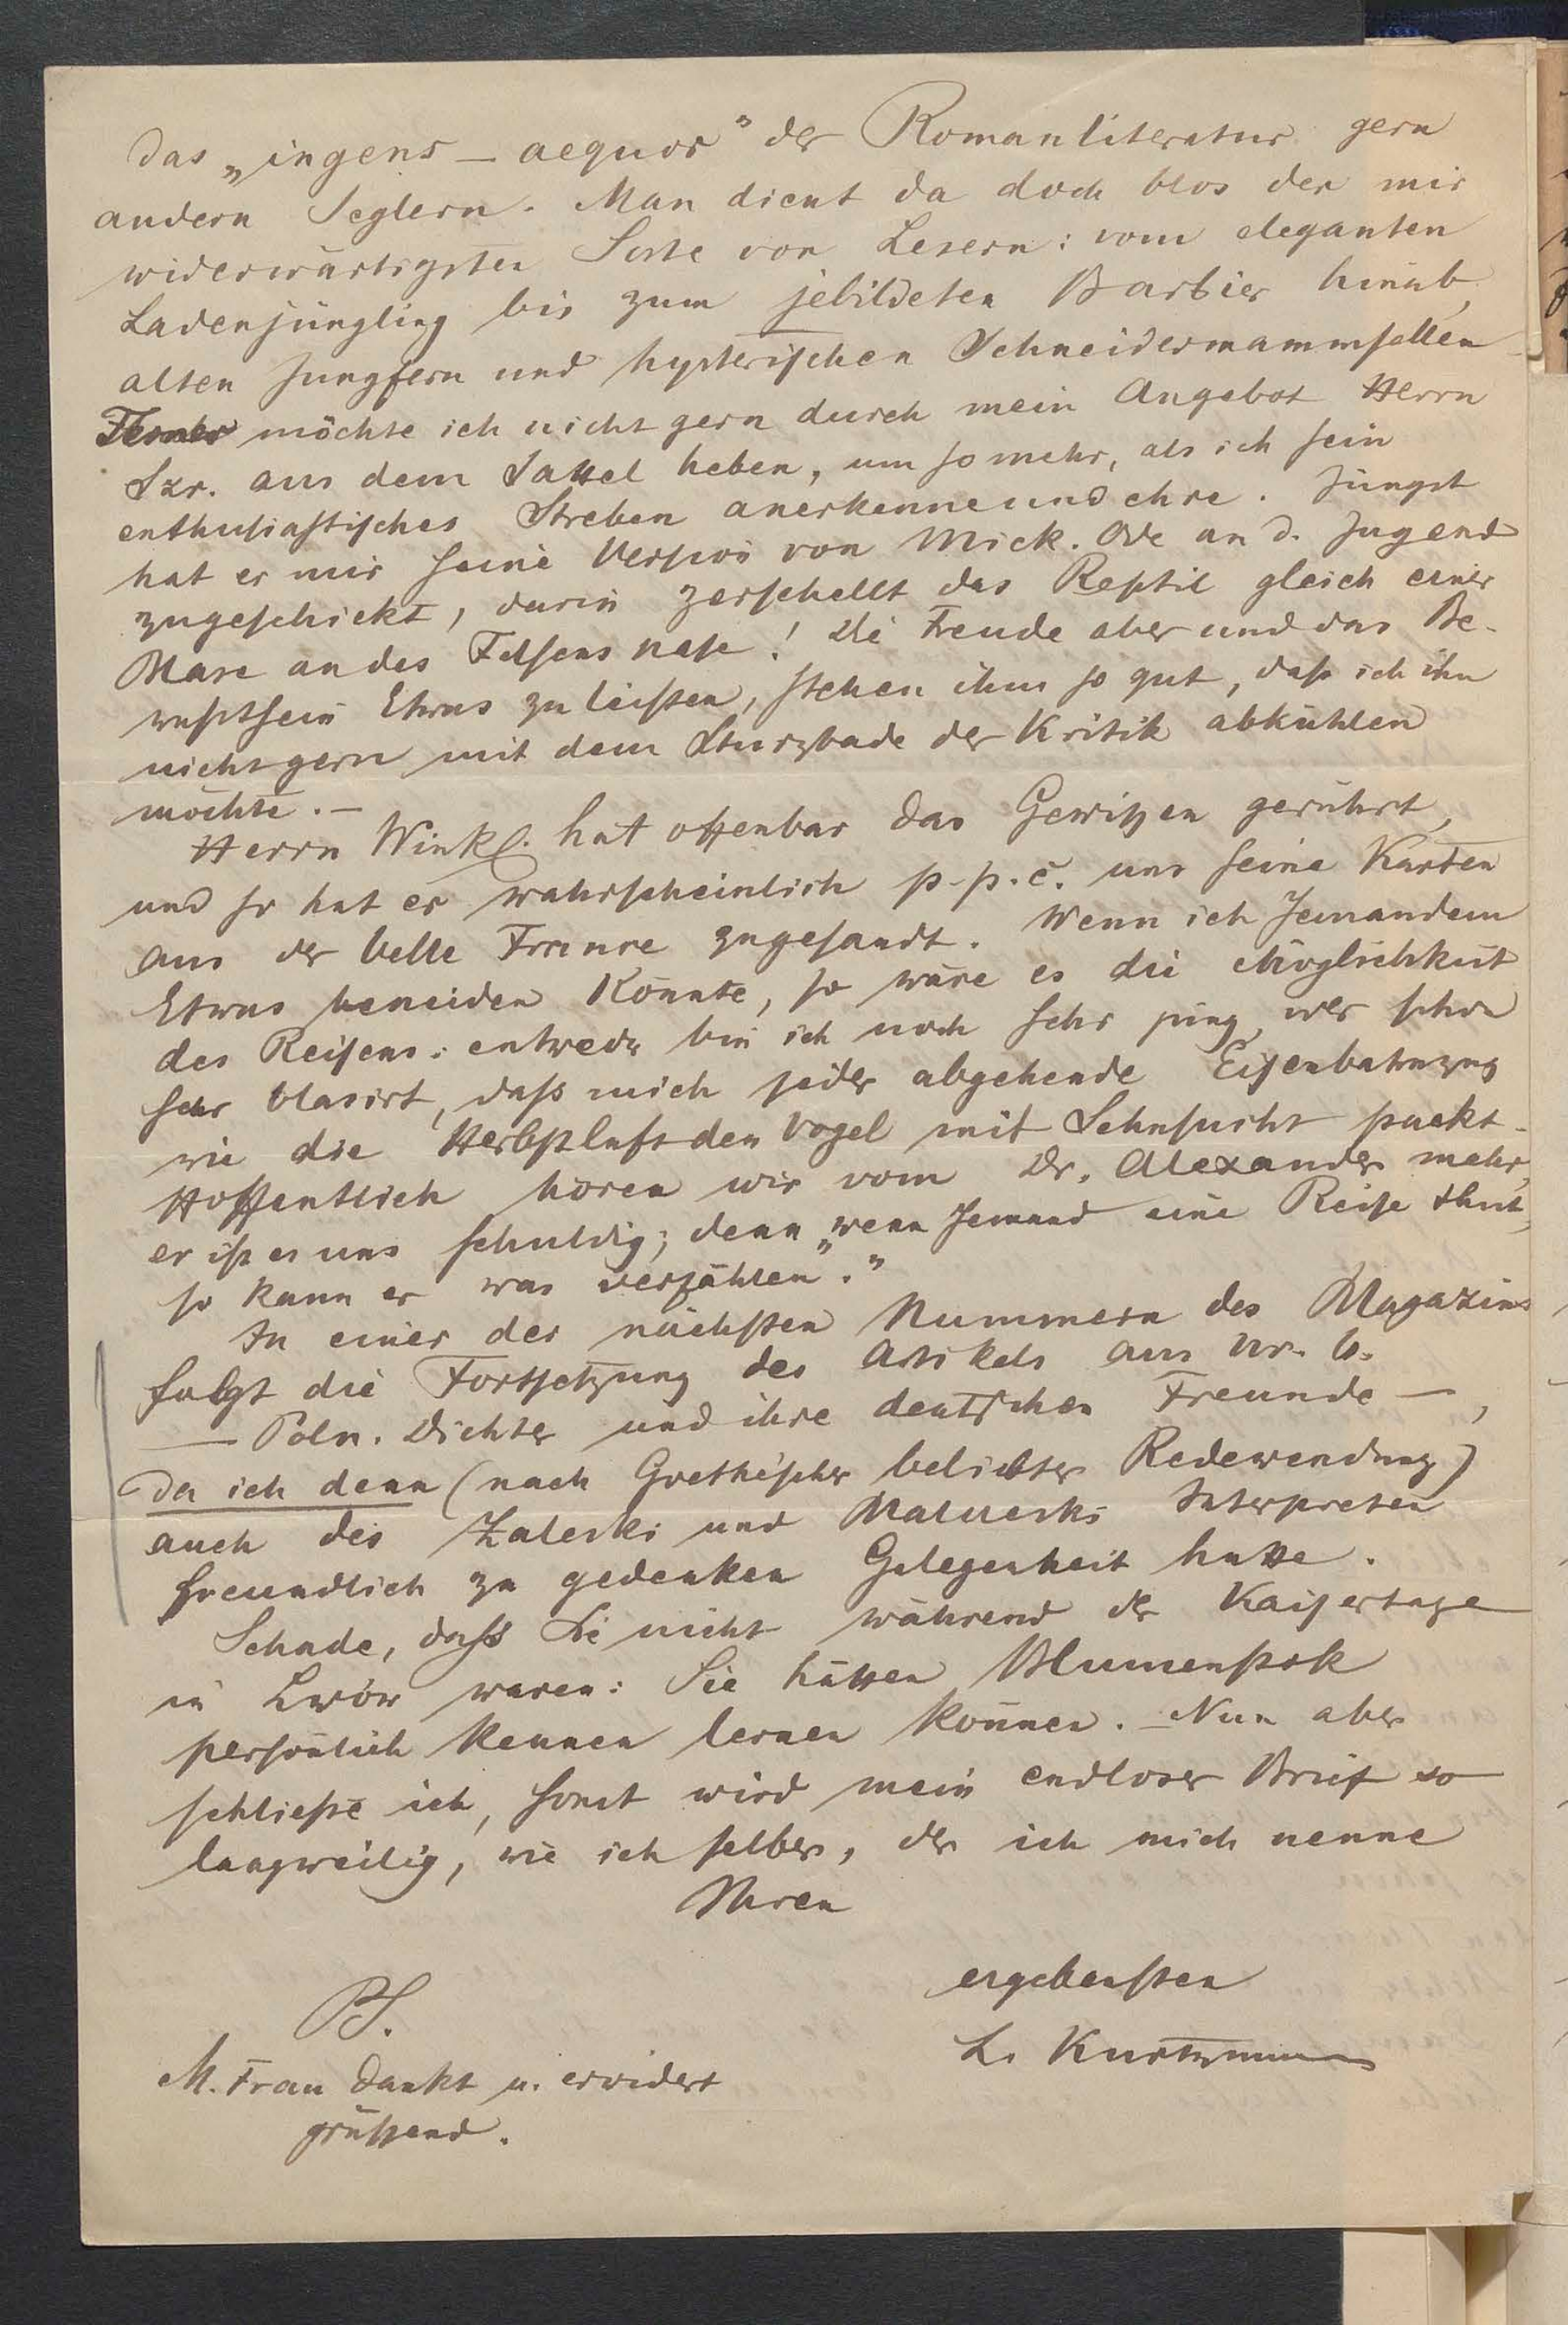 das „ingens — aequor" der Romanliteratur gern
andern Seglern. Man dient da doch blos der mir
widerwärtigsten Sorte von Lesern: vom eleganten
Ladenjüngling bis zum jebildeten Barbier hinab,
alten Jungfern und hysterischen Schneidermammsellen
Ferner möchte ich nicht gern durch mein Angebot Herrn
Szr. aus dem Sattel heben, um so mehr, als ich sein
enthusiastisches Streben anerkenne und ehre. Jüngst
hat er mir seine Version von Mick. Ode an d. Jugend
zugeschickt, darin zerschellt das Reptil gleich einer
Mase an des Felsens nase! Die Freude aber und das Be-
wusstsein Etwas zu leisten, stehen ihm so gut, dass ich ihn
nicht gern mit dem Sturzbade der Kritik abkühlen
möchte. —
Herrn Winkl. hat offenbar das Gewissen gerührt,
und so hat er wahrscheinlich p. p. c. uns seine Karten
aus der belle France zugesandt. Wenn ich Jemandem
Etwas beneiden könnte, so wäre es die Möglichkeit
des Reisens: entweder bin ich noch sehr jung, oder schon
sehr blasirt, dass mich jeder abgehende Eisenbahnzug
wie die Herbstluft den Vogel mit Sehnsucht packt.
Hoffentlich hören wir vom Dr. Alexander mehr,
er ist es uns schuldig; denn „wenn Jemand eine Reise thut,
so kann er was verzählen".
In einer der nächsten Nummern des Magazins
folgt die Fortsetzung des Artikels aus Nr. 6.
— Poln. Dichter und ihre deutschen Freunde —,
da ich denn (nach Goethe'scher beliebter Redewendung)
auch des Zaleski und Malczeski Interpreten
freundlich zu gedenken Gelegenheit hatte.
Schade, dass Sie nicht während der Kaisertage
in Lwów waren: Sie hätten Blumenstok
persönlich kennen lernen können. — Nun aber
schliesse ich, sonst wird mein endloser Brief so
langweilig, wie ich selber, der ich mich nenne
Ihren
ergebensten
L. Kurtzmann
PS.
M. Frau dankt u. erwidert
grüssend.